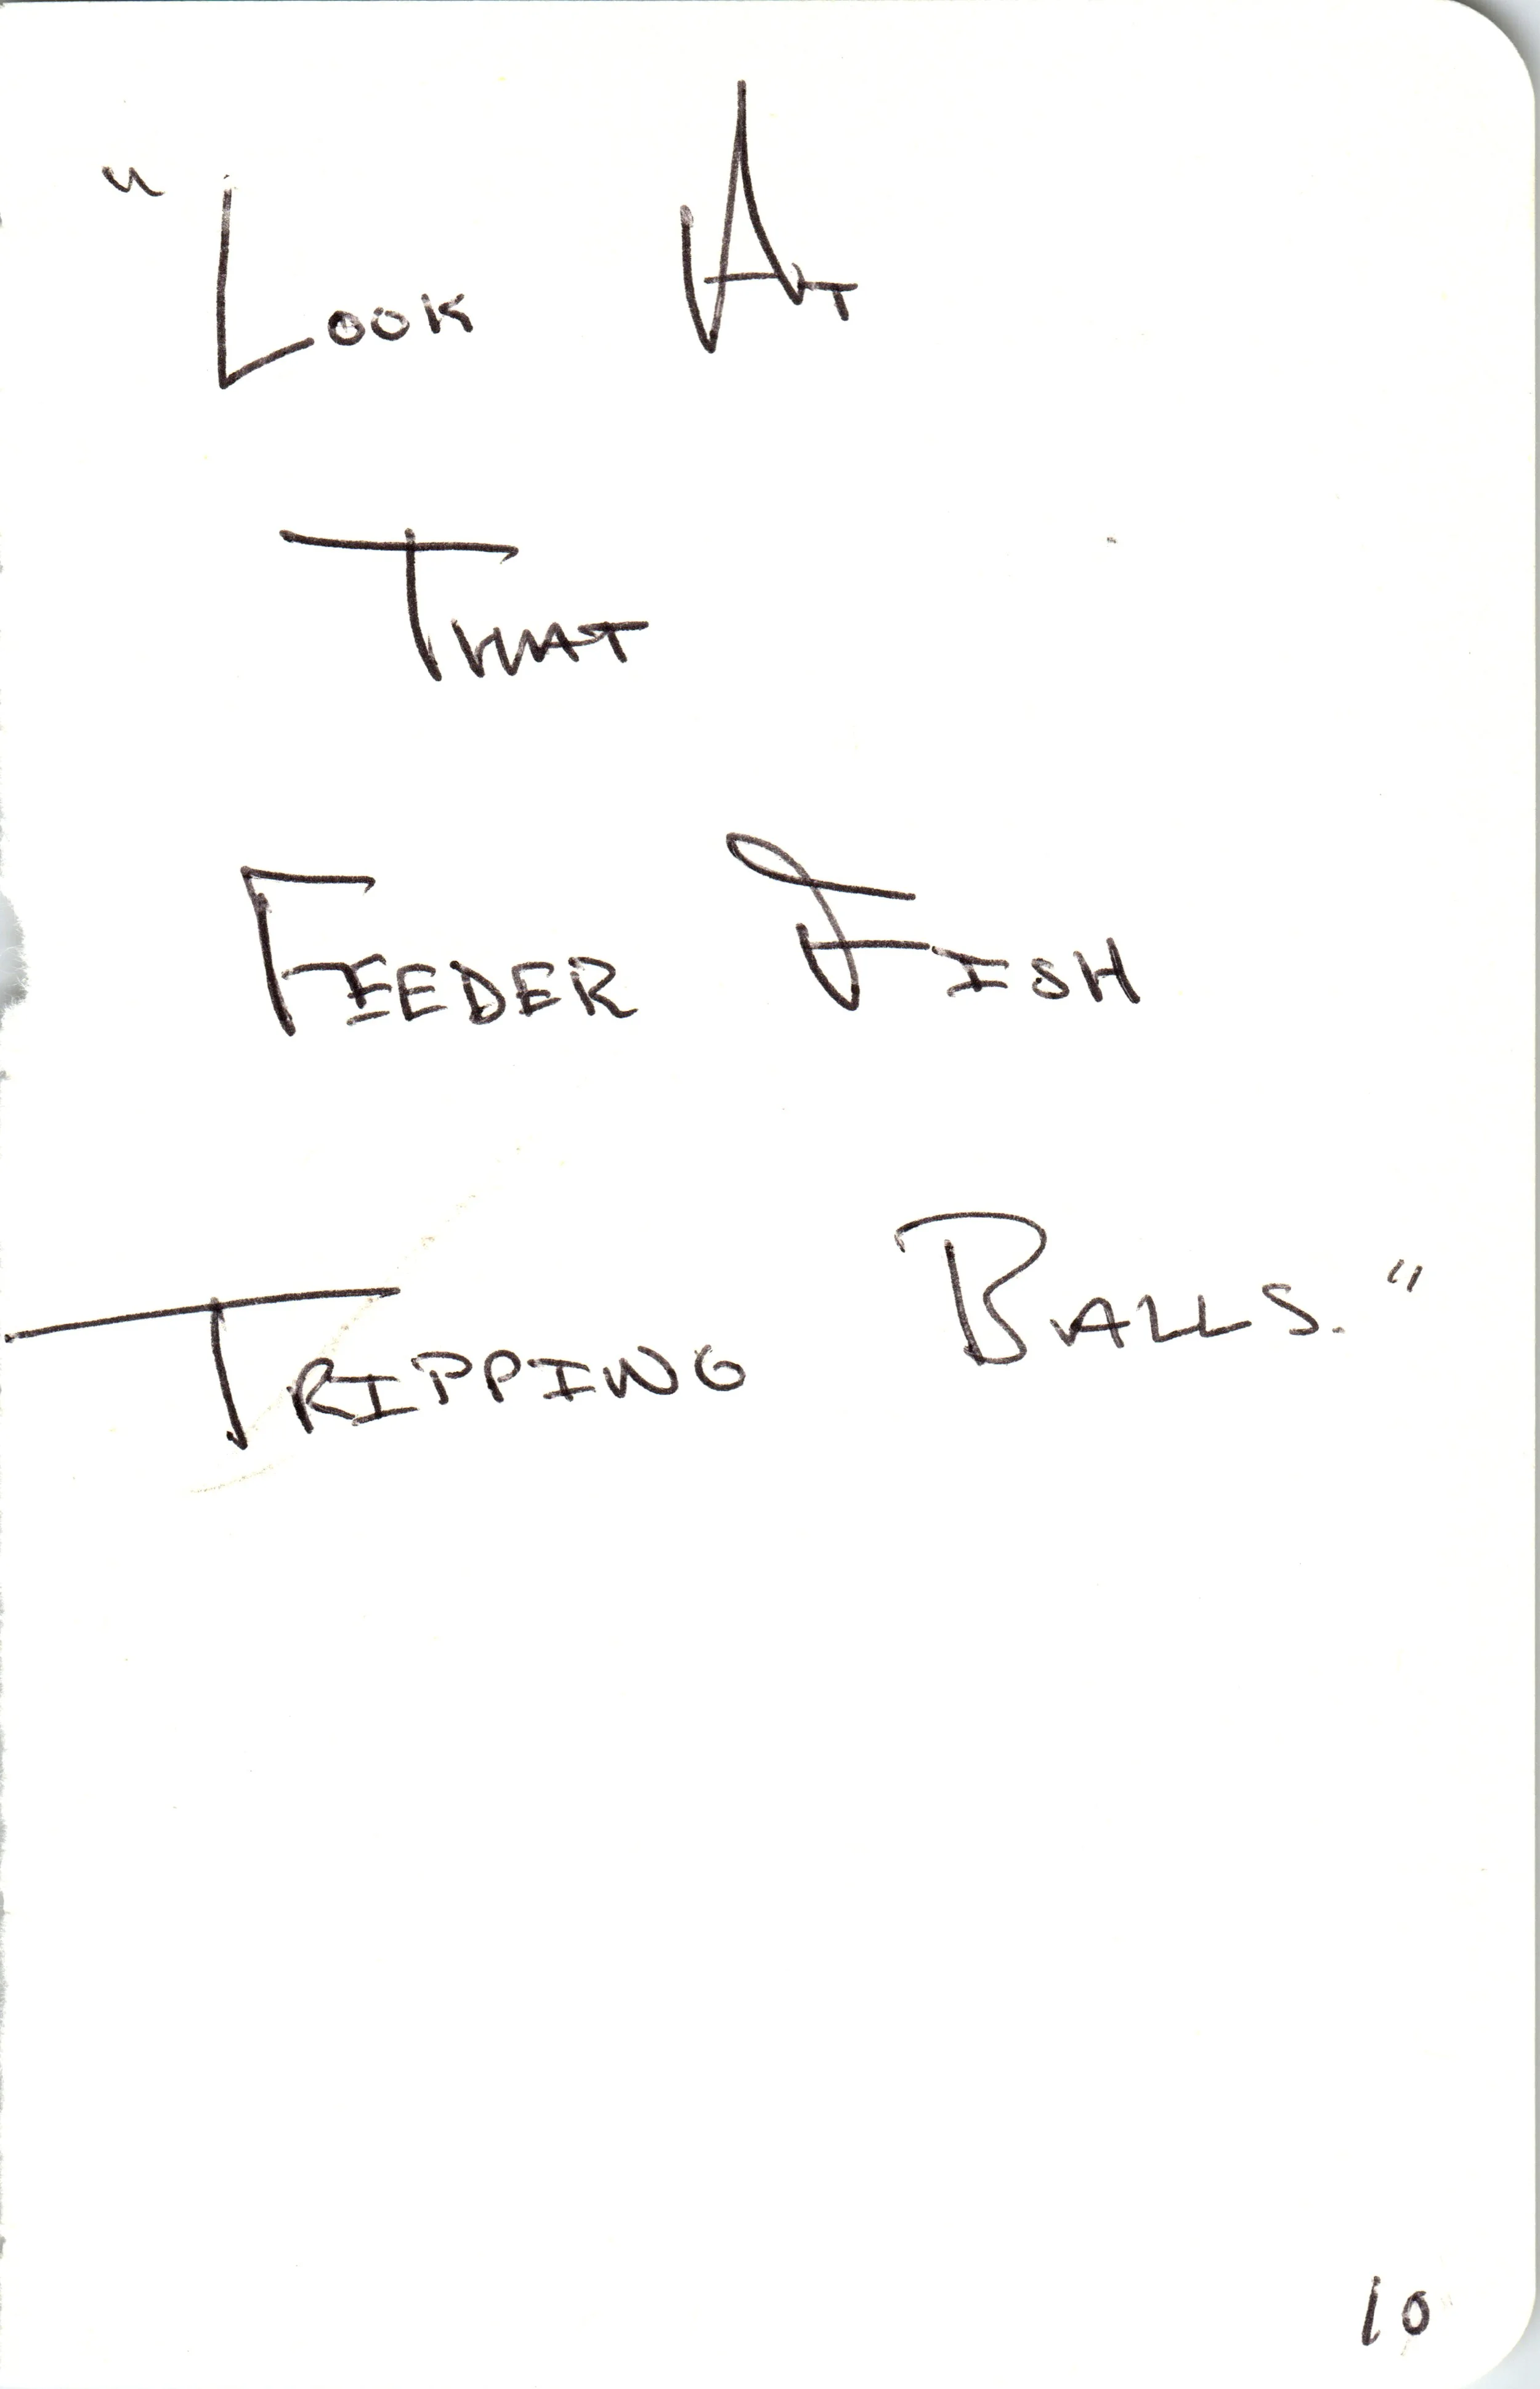 "Look At
That
Feeder Fish
Tripping Balls."
10